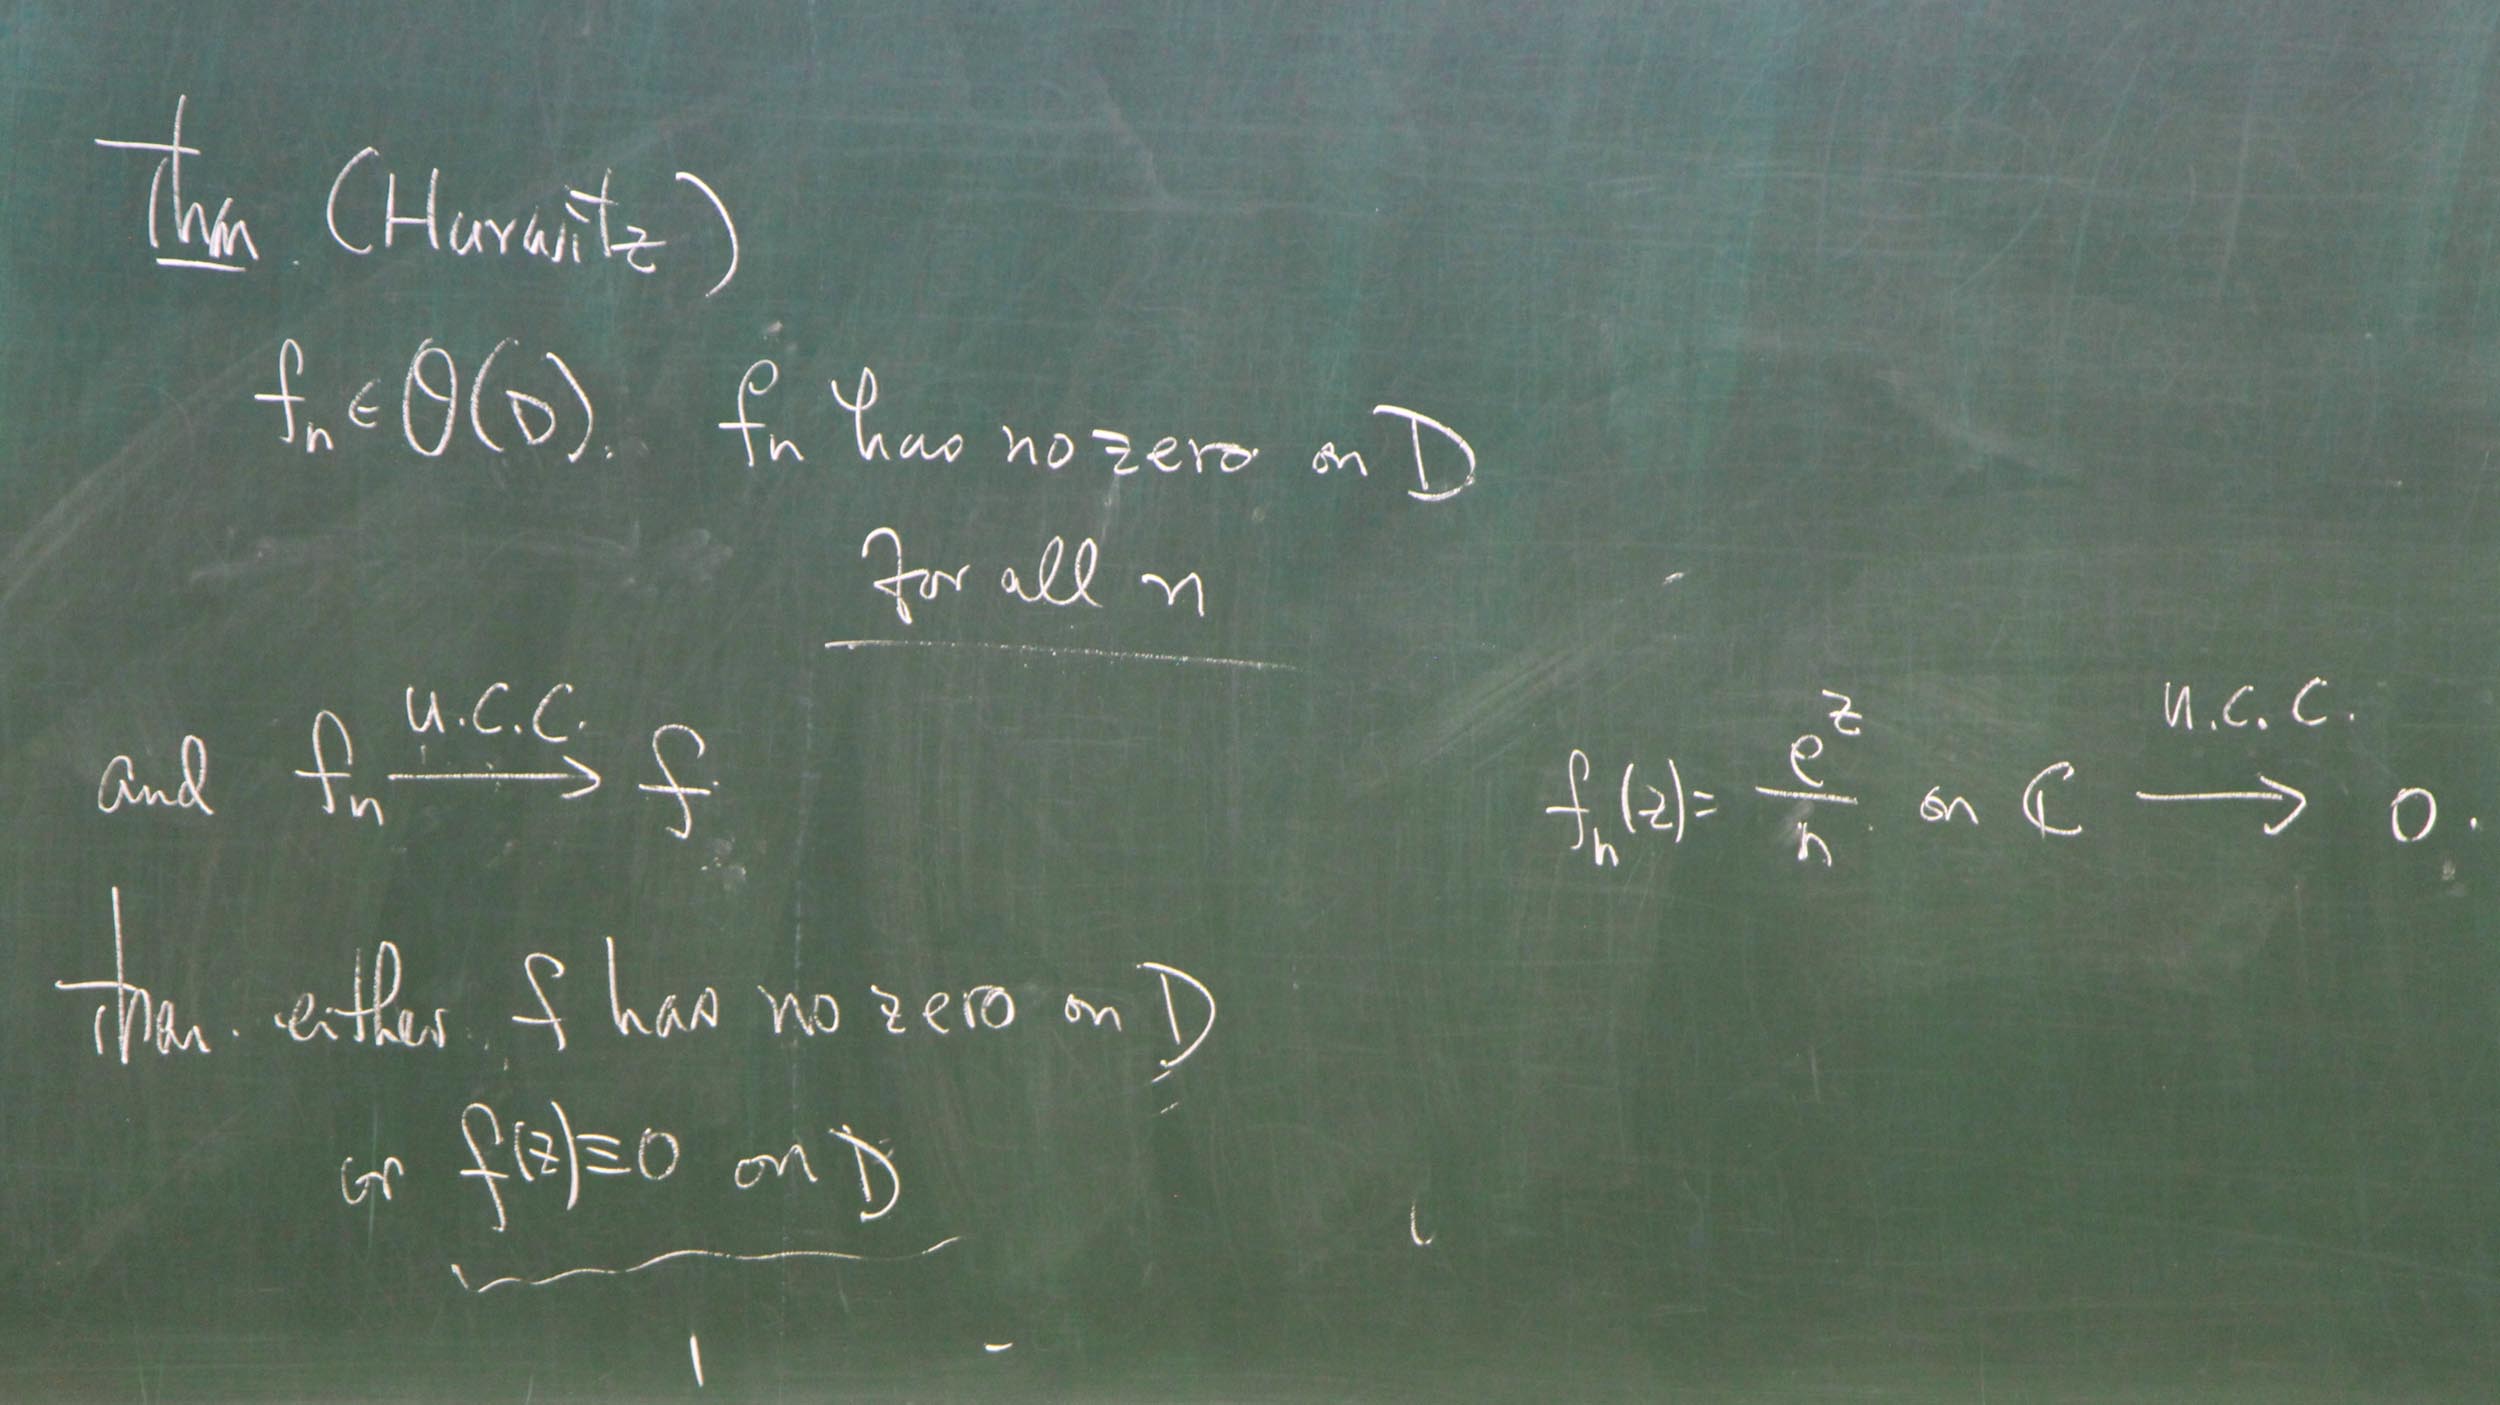 Thm. (Hurwitz)
fₙ ∈ O(D). fₙ has no zero on D
for all n
and fₙ —u.c.c.→ f
Then either f has no zero on D
or f(z)≡0 on D
fₙ(z) = e^z/n on ℂ —u.c.c.→ 0.